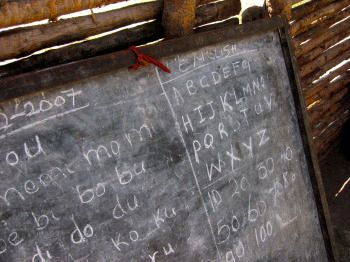 2-2007
ou
mom
bi bo bu
be bi
di do du
ko ku
ru
ENGLISH
ABCDEFG
HIJKLMN
PQRSTUV
WXYZ
10 20 30 40
50 60
90 100